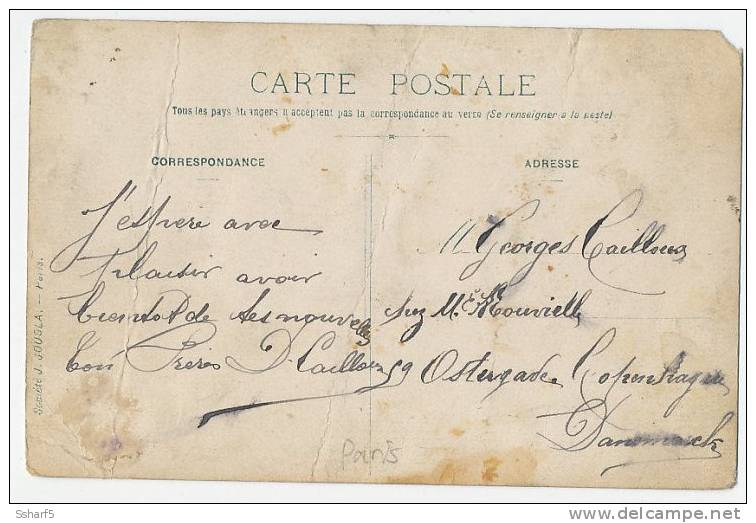 CARTE POSTALE
Tous les pays étrangers n'acceptent pas la correspondance au verso (Se renseigner à la Poste)
CORRESPONDANCE
J'espere avec
plaisir avoir
bientot de tes nouvelles
ton Frères D. Cailloux
ADRESSE
M. Georges Cailloux
chez Mr
59 Ostergade Copenhague
Danemarck
Société J. JOUGLA. — Paris.
Paris
Ssharf5
delcampe.net